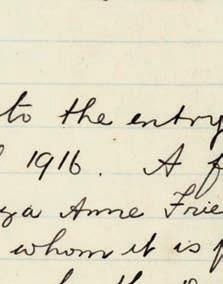 to the entry
1916. A f
Anne Frie
whom it is p